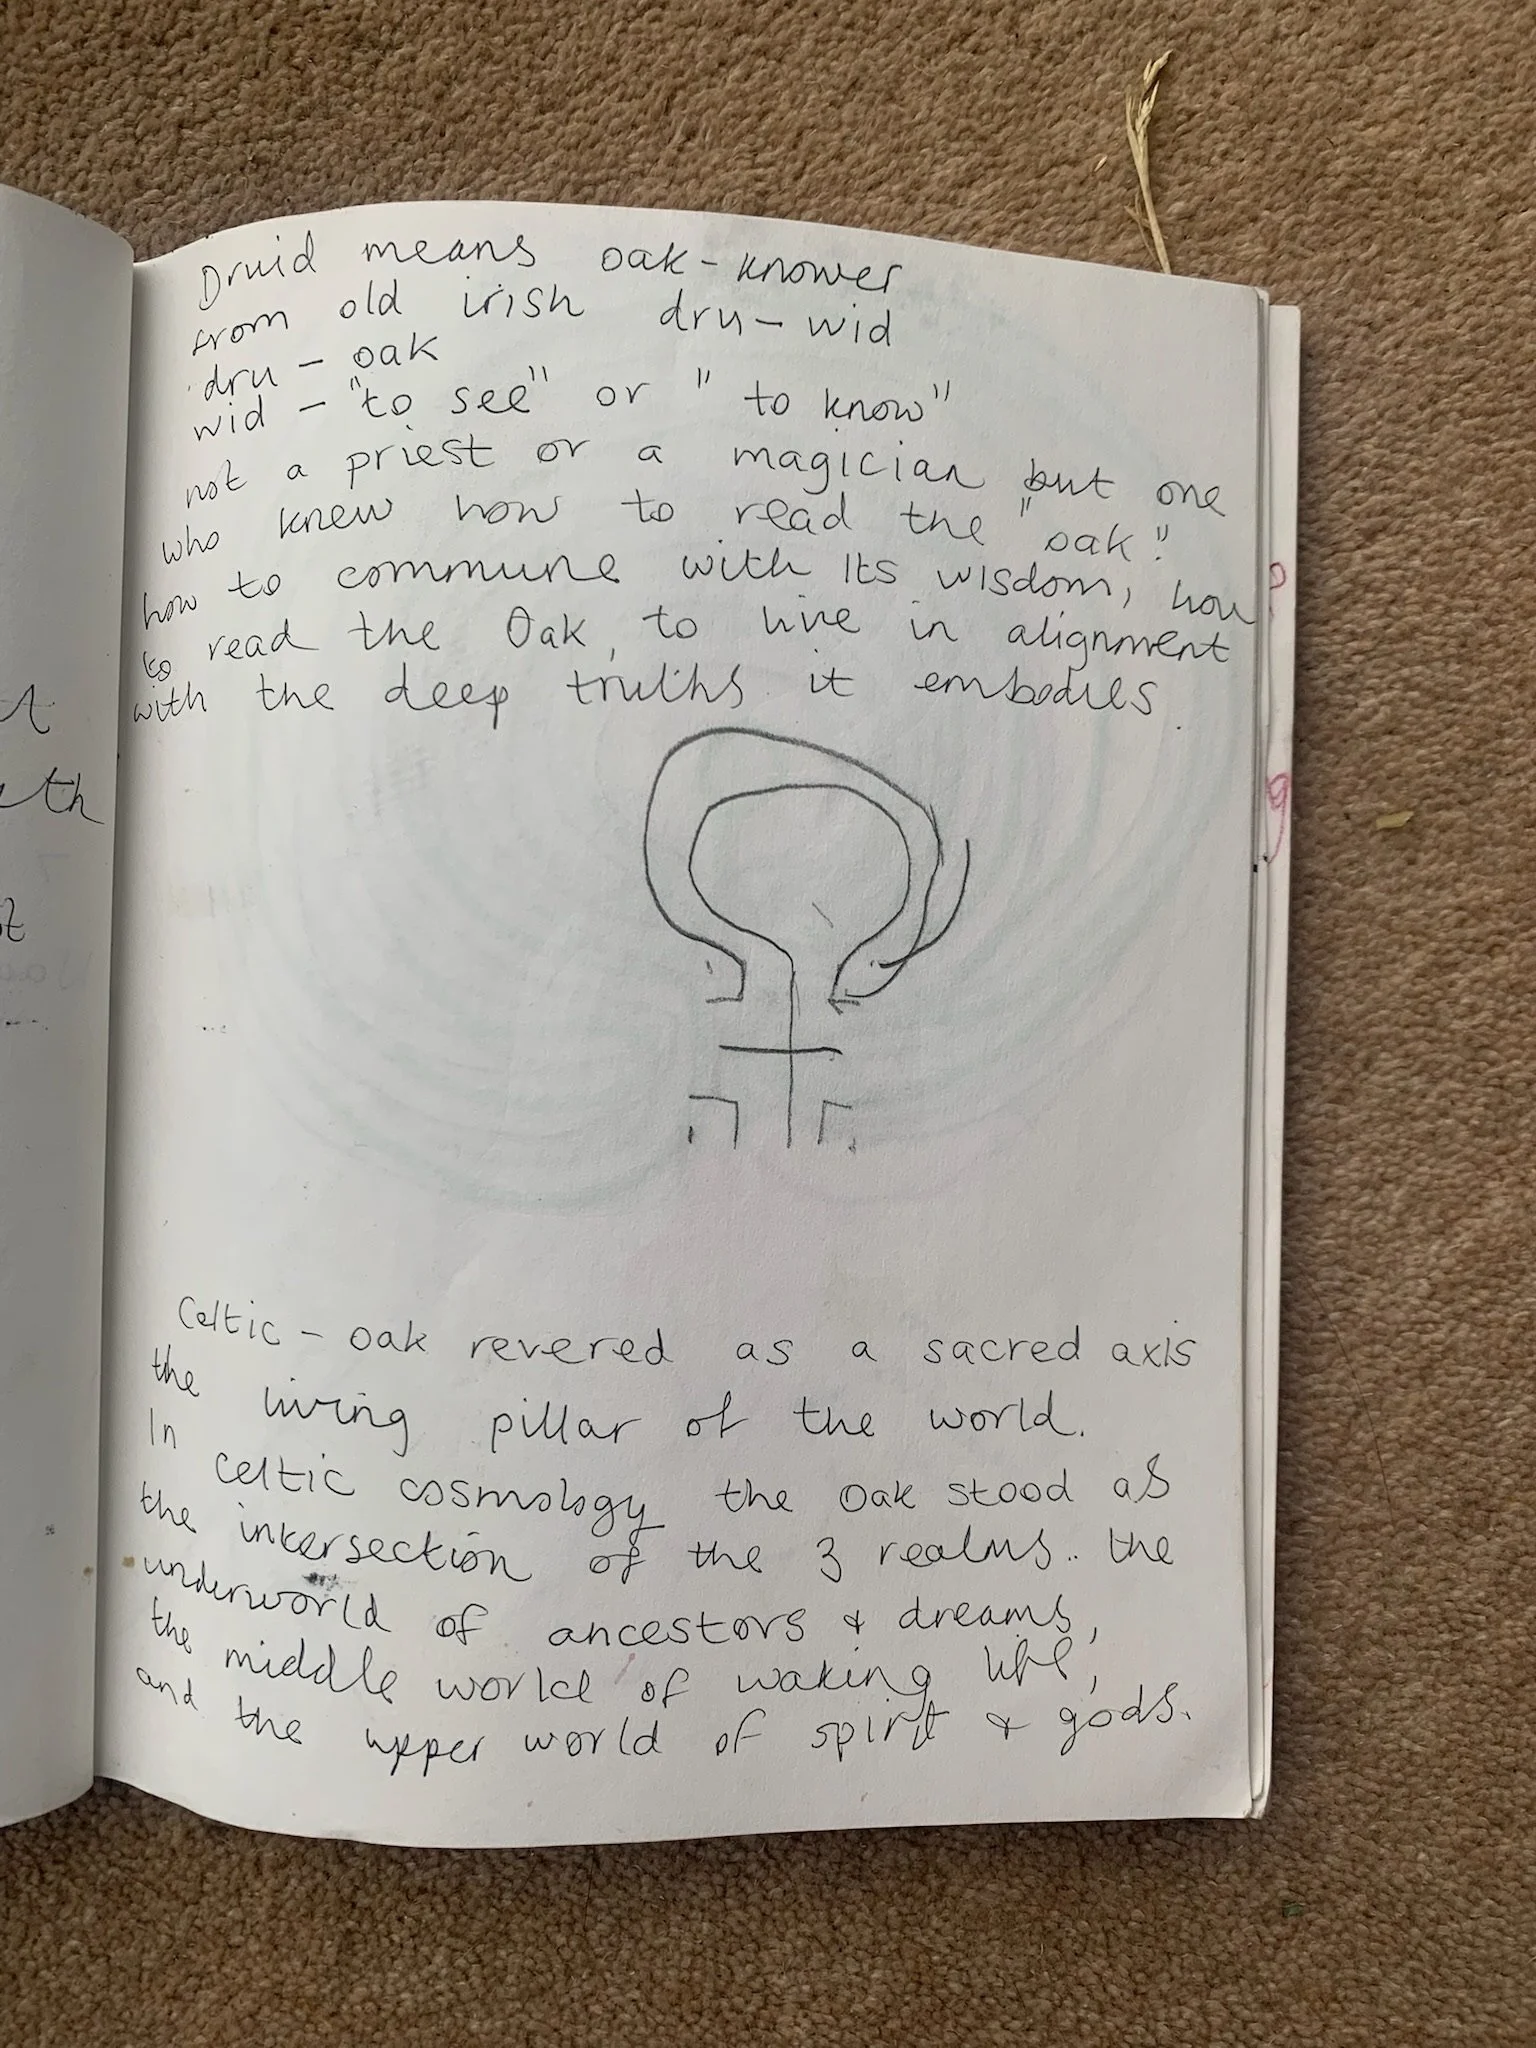 Druid means oak-knower
from old irish dru-wid
dru - oak
wid - "to see" or "to know"
not a priest or a magician but one
who knew how to read the "oak".
how to commune with its wisdom, how
to read the Oak, to live in alignment
with the deep truths it embodies.
Celtic - oak revered as a sacred axis
the living pillar of the world.
In Celtic cosmology the Oak stood as
the intersection of the 3 realms.. the
underworld of ancestors & dreams,
the middle world of waking life,
and the upper world of spirit & gods.